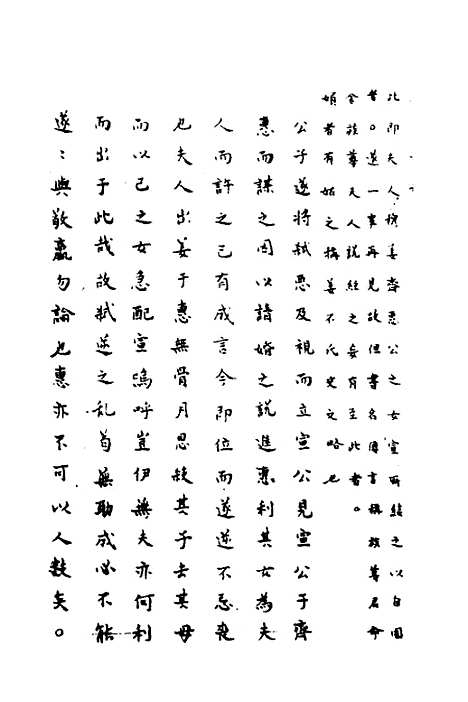 此即夫人穆姜齊惠公之女宣所結之以自固
者。遂一事再見故但書名傳言稱族尊君命
舍族尊夫人說經之妄有至此者。
婦者有姑之稱姜不氏史文略也
公子遂將弒惡及視而立宣公見宣公于齊
惠而謀之因以請婚之說進惠利其女為夫
人而許之已有成言今即位而遂逆不忌喪
也夫人出姜于惠無骨月恩殺其子去其母
而以己之女急配宣嗚呼豈伊無夫亦何利
而出于此哉故弒逆之乱苟無助成必不能
遂〻與敬嬴勿論也惠亦不可以人数矣。